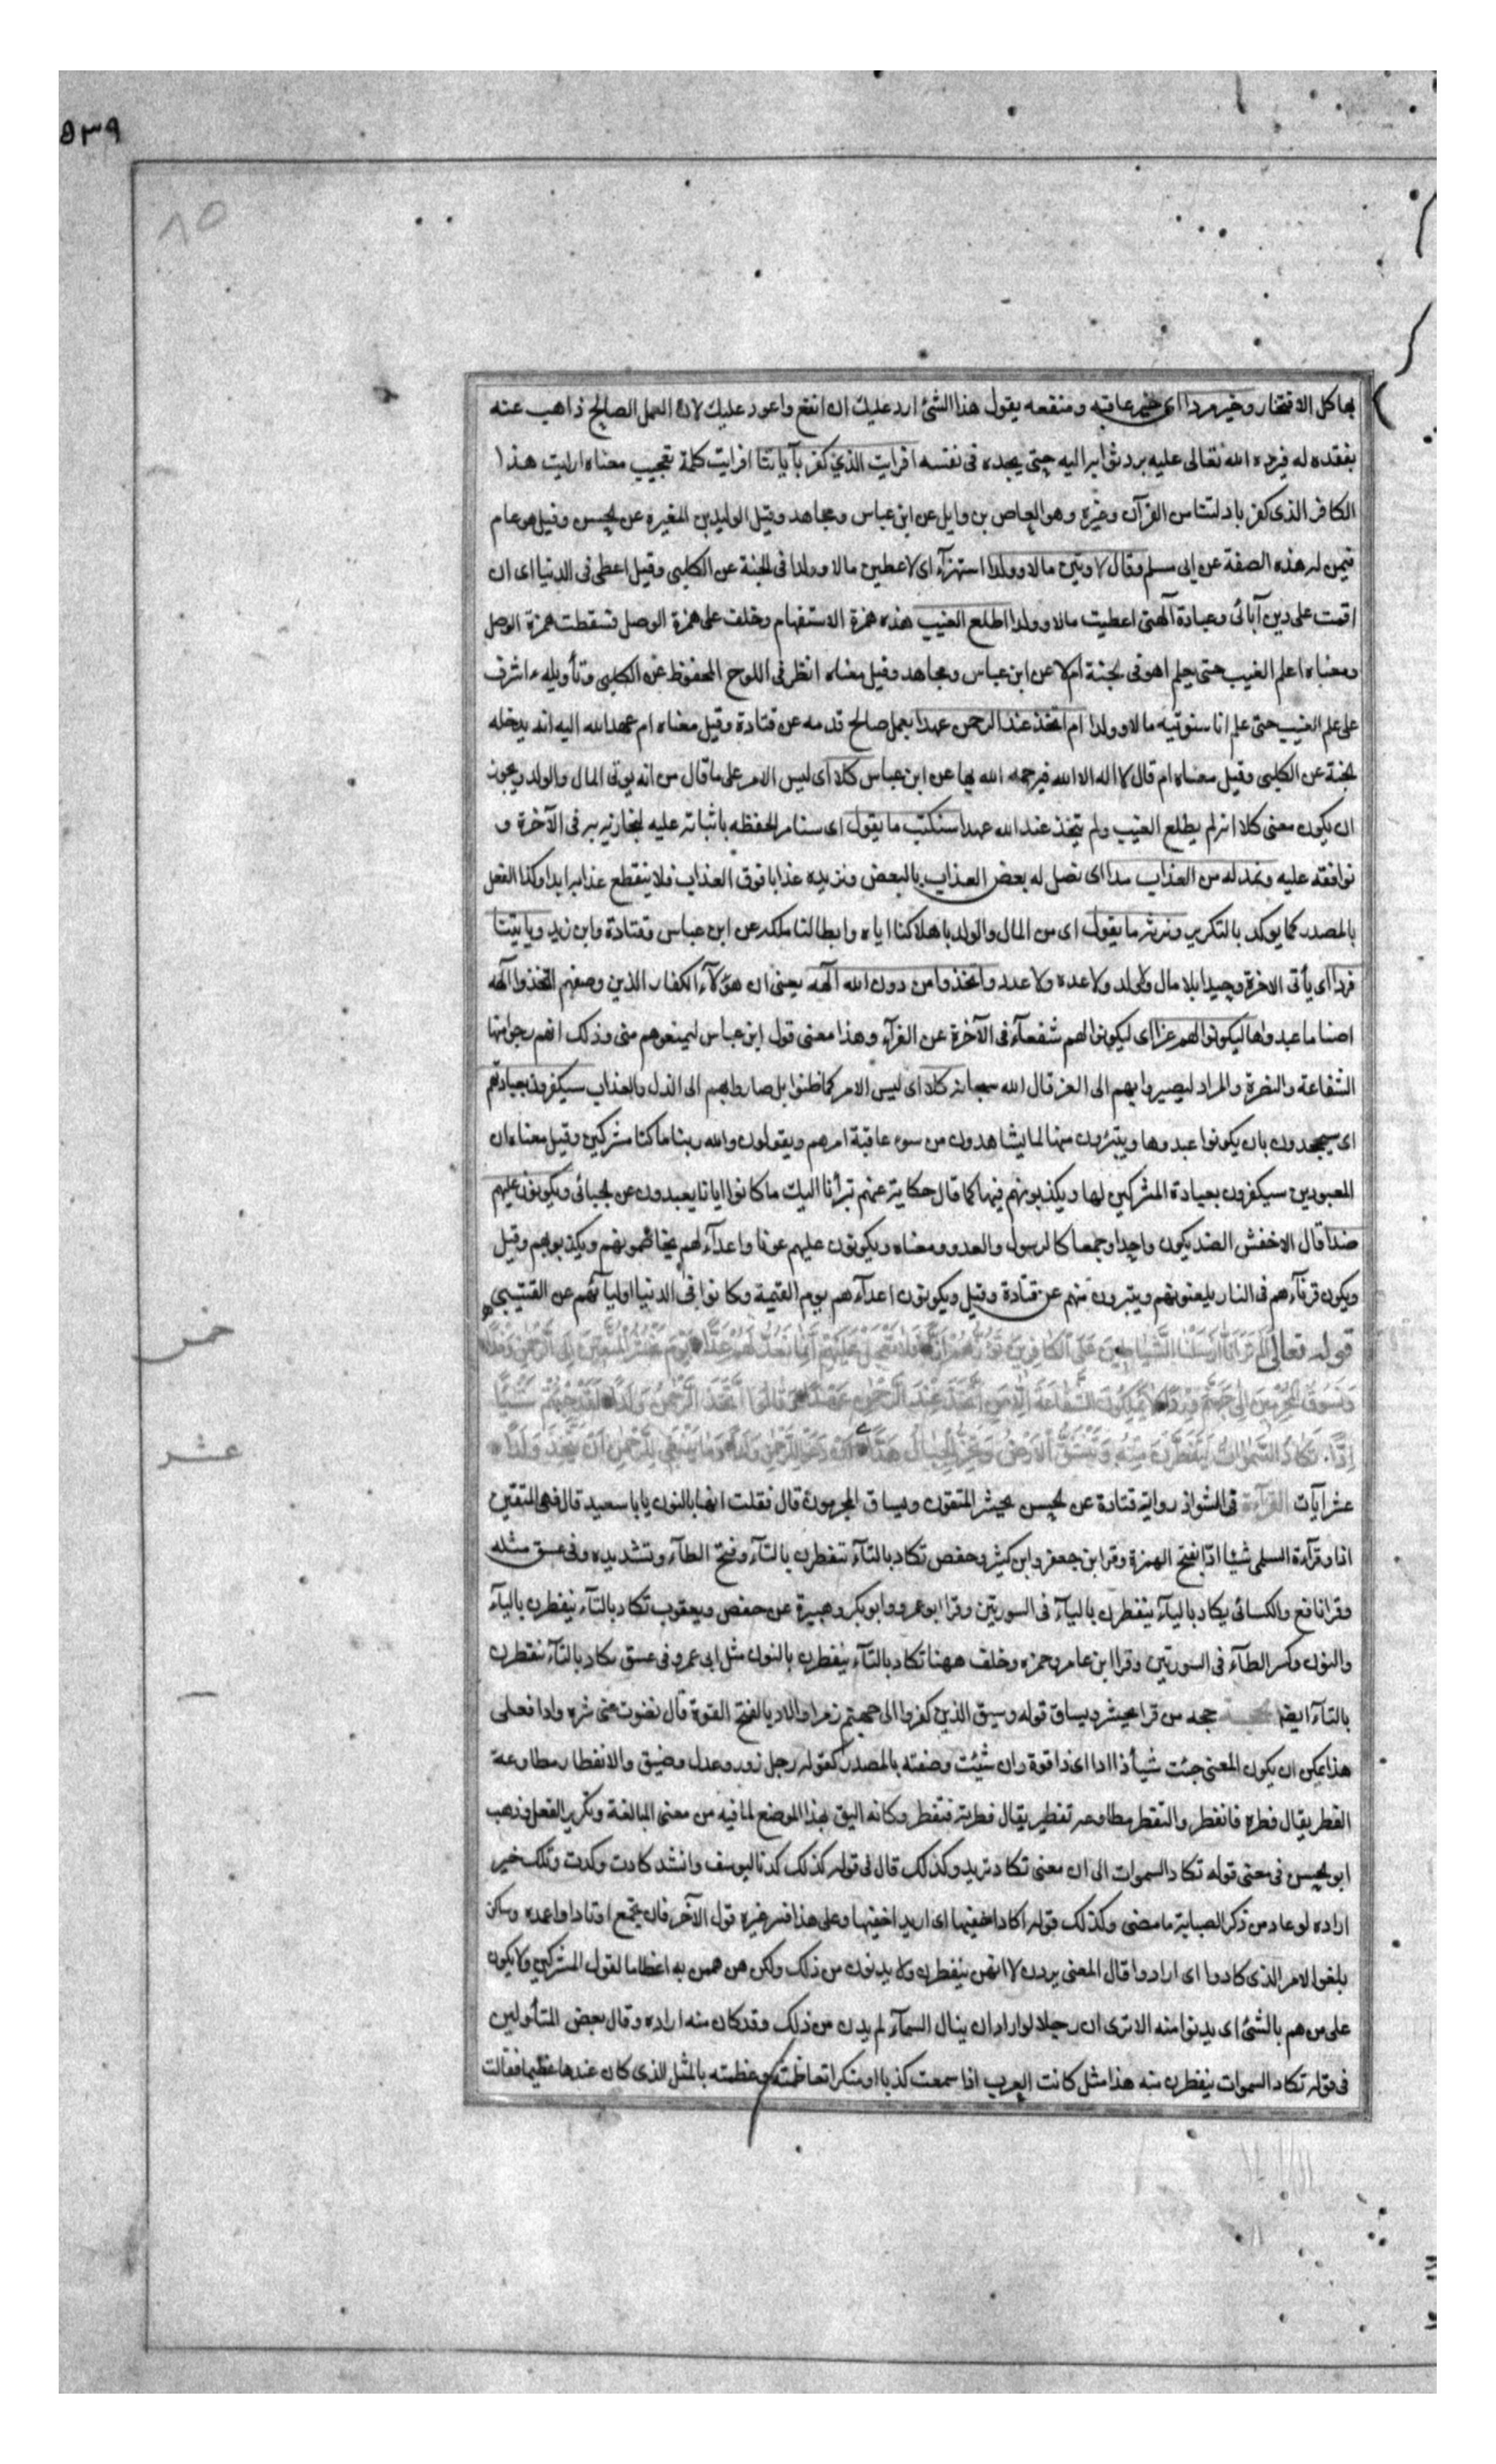 ٥٣٩
٨٥
بها كل الافتخار وخير مردا اى خير عاقبة ومنفعة يقول هذا الشئ ارد عليك اى انفع واعود عليك لان العمل الصالح ذاهب عنه
بفقده له فيرده الله تعالى عليه برد ثوابه اليه حتى يجده فى نفسه افرايت الذي كفر بآياتنا افرايت كلمة تعجيب معناه ارايت هذا
الكافر الذى كفر بادلتنا من القرآن وغيره وهو العاص بن وايل عن ابن عباس ومجاهد وقيل الوليد بن المغيرة عن الحسن وقيل هو عام
فيمن له هذه الصفة عن ابى مسلم وقال لاوتين مالا وولدا استهزآء اى لاعطين مالا وولدا فى الجنة عن الكلبى وقيل اعطى فى الدنيا اى ان
اقمت على دين آبائى وعبادة آلهتى اعطيت مالا وولدا اطلع الغيب هذه همزة الاستفهام دخلت على همزة الوصل فسقطت همزة الوصل
ومعناه اعلم الغيب حتى يعلم اهو فى الجنة ام لا عن ابن عباس ومجاهد وقيل معناه انظر فى اللوح المحفوظ عن الكلبى وتأويله ءاشرف
على علم الغيب حتى علم انا سنوتيه مالا وولدا ام اتخذ عند الرحمن عهدا بعمل صالح قدمه عن قتادة وقيل معناه ام عهد الله اليه انه يدخله
الجنة عن الكلبى وقيل معناه ام قال لا اله الا الله فيرحمه الله بها عن ابن عباس كلا اى ليس الامر على ما قال من انه يوتى المال والولد ويجوز
ان يكون معنى كلا انه لم يطلع الغيب ولم يتخذ عند الله عهدا سنكتب ما يقول اى سنامر الحفظه باثباته عليه لنجازيه به فى الآخرة و
نوافقه عليه ونمد له من العذاب مدا اى نصل له بعض العذاب بالبعض ونزيده عذابا فوق العذاب فلا ينقطع عذابه ابدا وكذا الفعل
بالمصدر كما يوكد بالتكرير ونرثه ما يقول اى من المال والولد باهلاكنا اياه وابطالنا ملكه عن ابن عباس وقتادة وابن زيد وياتينا
فردا اى يأتى الاخرة وحيدا بلا مال ولا ولد ولا عدة ولا عدد واتخذوا من دون الله آلهة يعنى ان هؤلآء الكفار الذين وصفهم اتخذوا آلهة
اصناما عبدوها ليكونوا لهم عزا اى ليكونوا لهم شفعآء فى الآخرة عن الفرآء وهذا معنى قول ابن عباس ليمنعوهم منى وذلك انهم رجوا منها
الشفاعة والنصرة والمراد ليصيروا بهم الى العز قال الله سبحانه كلا اى ليس الامر كما ظنوا بل صاروا بهم الى الذل والعذاب سيكفرون بعبادتهم
اى سيجحدون بان يكونوا عبدوها ويتبرون منها لما يشاهدون من سوء عاقبة امرهم ويقولون والله ربنا ما كنا مشركين وقيل معناه ان
المعبودين سيكفرون بعبادة المشركين لها ويكذبونهم فيها كما قال حكاية عنهم تبرأنا اليك ما كانوا ايانا يعبدون عن الجبائى ويكونون عليهم
ضدا قال الاخفش الضد يكون واحدا وجمعا كالرسول والعدو ومعناه ويكونون عليهم عونا واعدآء لهم يخاصمونهم ويكذبونهم وقيل
ويكون قرنآءهم فى النار يلعنونهم ويتبرون منهم عن قتادة وقيل ويكونون اعدآءهم يوم القيمة وكانوا فى الدنيا اوليآئهم عن القتيبى
خمس
قوله تعالى الم تر انا ارسلنا الشياطين على الكافرين تؤزهم ازا فلا تعجل عليهم انما نعد لهم عدا يوم نحشر المتقين الى الرحمن وفدا
ونسوق المجرمين الى جهنم وردا لا يملكون الشفاعة الا من اتخذ عند الرحمن عهدا وقالوا اتخذ الرحمن ولدا لقد جئتم شيئا
عشر
ادا تكاد السموات يتفطرن منه وتنشق الارض وتخر الجبال هدا ان دعوا للرحمن ولدا وما ينبغى للرحمن ان يتخذ ولدا
عشر آيات القرآءة فى الشواذ رواية قتادة عن الحسن يحشر المتقون ويساق المجرمون قال فقلت انها بالنون يا ابا سعيد قال فهى للمتقين
اذا وقرآءة السلمى شيئا ادا بفتح الهمزة وقرا ابن جعفر وابن كثير وحفص تكاد بالتآء تتفطرن بالتآء وفتح الطآء وتشديده وفى عسق مثله
وقرا نافع والكسائى يكاد باليآء يتفطرن باليآء فى السورتين وقرا ابو عمرو وابو بكر وهبيرة عن حفص ويعقوب تكاد بالتآء ينفطرن باليآء
والنون وكسر الطآء فى السورتين وقرا ابن عامر وحمزه وخلف ههنا تكاد بالتآء ينفطرن بالنون مثل ابى عمرو فى عسق تكاد بالتآء تتفطرن
بالتآء ايضا حجه من قرا يحشر ويساق قوله وسيق الذين كفروا الى جهنم زمرا والاد بالفتح القوة قال نضوت عنى شره وادا فعلى
هذا يمكن ان يكون المعنى جئت شيأ ذا ادا اى ذا قوة وان شئت وصفته بالمصدر كقوله رجل زور وعدل وضيق والانفطار مطاوعة
الفطر يقال فطره فانفطر والتفطر مطاوعة تفطير يقال فطرته فتفطر وكانه اليق بهذا الموضع لما فيه من معنى المبالغة وتكرير الفعل وذهب
ابو الحسن فى معنى قوله تكاد السموات الى ان معنى تكاد تريد وكذلك قال فى قوله كذلك كدنا ليوسف وانشد كادت وكدت وتلك خير
اراده لو عاد من ذكر الصبابة ما مضى وكذلك قوله اكاد اخفيها اى اريد اخفيها وعلى هذا فسر غيره قول الآخر فان تجمع اوتادا واعمده وساكن
بلغوا الامر الذى كادوا اى ارادوا قال المعنى يردن لا انهن ينفطرن ولا يدنون من ذلك ولكن من هممن به اعظاما لقول المشركين ولا يكون
على من هم بالشئ اى يدنوا منه الا ترى ان رجلا لو اراد ان ينال السمآء لم يدن من ذلك وقد كان منه اراده وقال بعض المتأولين
فى قوله تكاد السموات ينفطرن منه هذا مثل كانت العرب اذا سمعت كذبا او منكرا تعاظمته وعظمته بالمثل الذى كان عندها عظيما فقالت